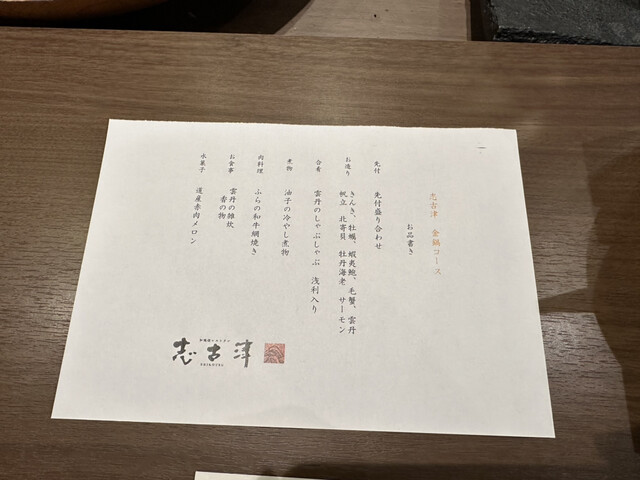 志古津 金鍋コース
お品書き
先付 先付盛り合わせ
お造り きんき、牡蠣、蝦夷鮑、毛蟹、雲丹
帆立 北寄貝 牡丹海老 サーモン
合肴 雲丹のしゃぶしゃぶ 浅利入り
煮物 油子の冷やし煮物
肉料理 ふらの和牛網焼き
お食事 雲丹の雑炊
香の物
水菓子 道産赤肉メロン
志古津
SHIKOTSU